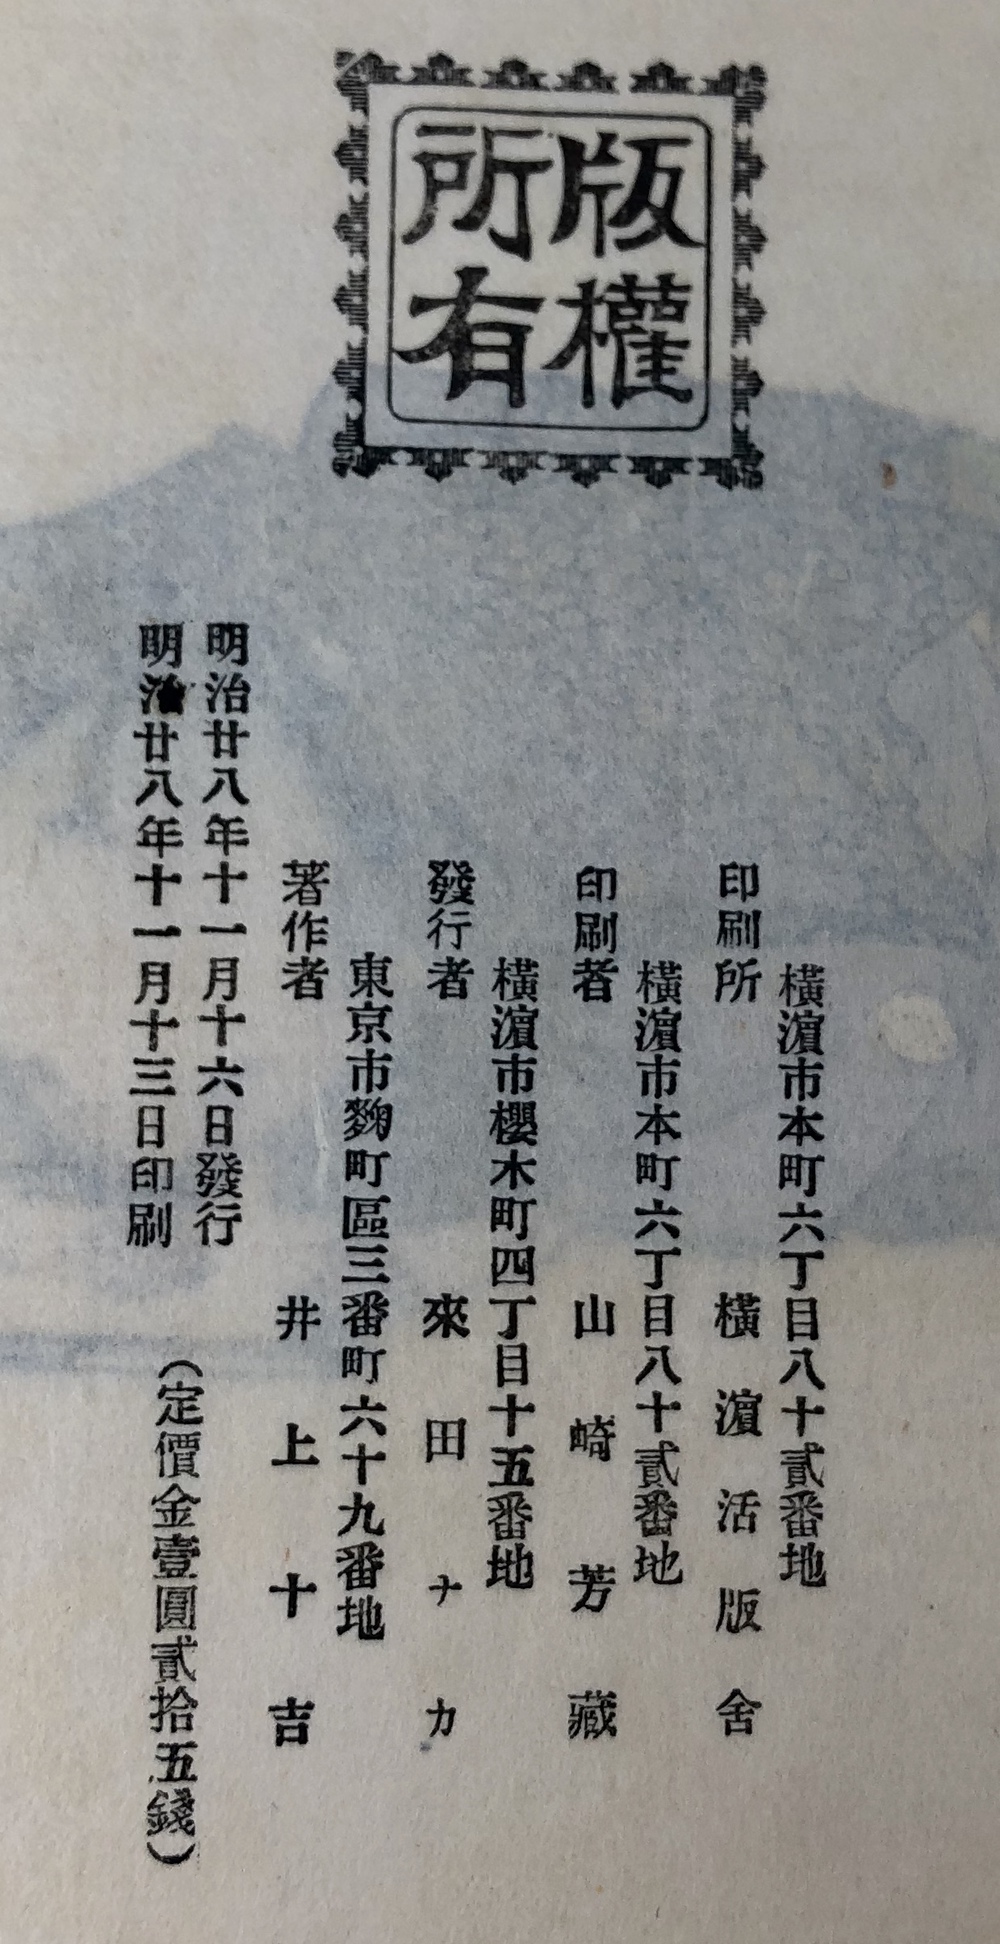 版權
所有
橫濵市本町六丁目八十貳番地
印刷所 橫濵活版舍
橫濵市本町六丁目八十貳番地
印刷者 山崎芳藏
橫濵市櫻木町四丁目十五番地
發行者 來田ナカ
東京市麴町區三番町六十九番地
著作者 井上十吉
明治廿八年十一月十六日發行
明治廿八年十一月十三日印刷
（定價金壹圓貳拾五錢）